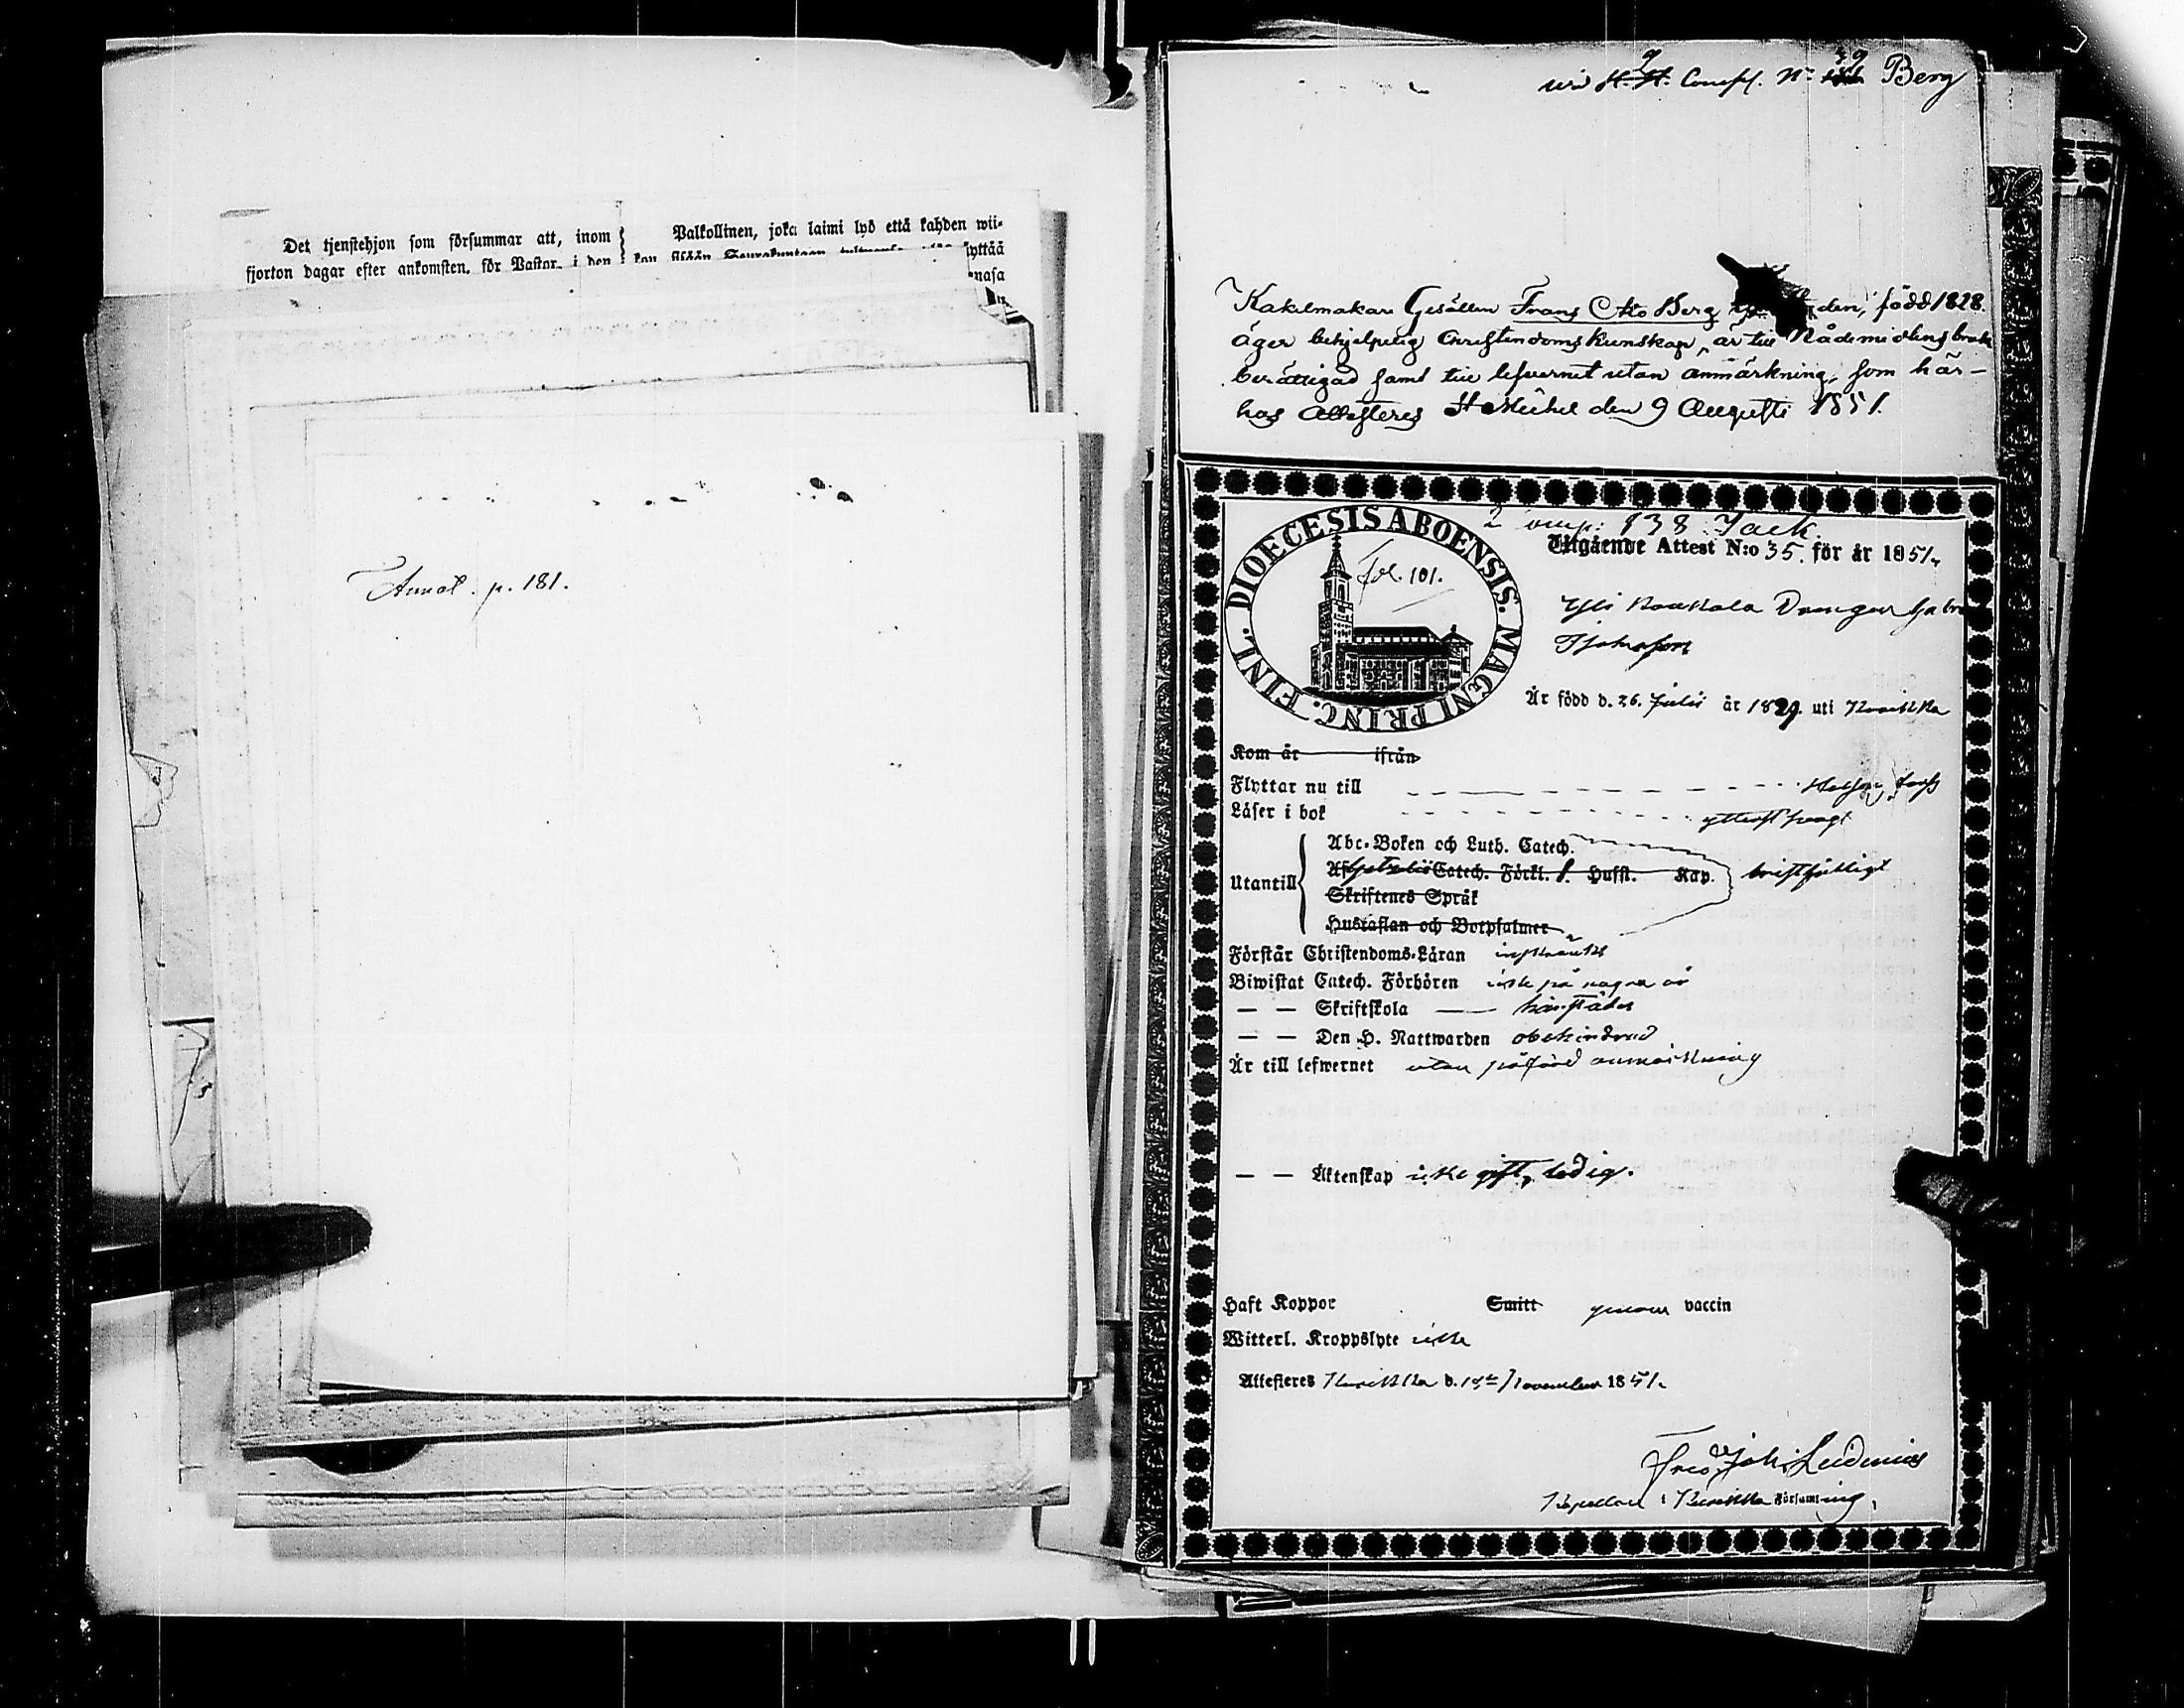 Det tjenstehjon som försummar att, inom
fjorton dagar efter ankomsten, för Pastor i den
Palkollinen, joka laimi lyö että kahden wii-
kon sisään Seurakuntaan
yttää
nasa
Annot. p. 181.
Compl. N:
39
Berg
Kakelmakare Gesällen Frans Otto Berg den, född 1828.
äger behjelpelig Christendoms kunskap, är till Nådemedlens bruk
berättigad samt till lefvernet utan anmärkning, som här-
hos Attesteras St Michel den 9 Augusti 1851.
DIOECESIS ABOENSIS. MAGNI PRINC. FINL.
Fol. 101.
2 138 Jack.
Utgående Attest N:o 35. för år 1851.
Drengen
Är född d. 26. Julii år 1829. uti
Kom år ifrån
Flyttar nu till Helsingfors
Läser i bok ytterst svagt
Utantill
Abc-Boken och Luth. Catech.
Catech. Förkl. Hufst. Kap. bristfälligt
Skriftenes Språk
Hustaflan och Botpsalmer
Förstår Christendoms-Läran inskränkt
Biwistat Catech. Förhören icke på några år
— — Skriftskola — härstädes
— — Den H. Nattwarden obehindrad
Är till lefwernet utan påförd anmärkning
— — Äktenskap icke gift, ledig.
Haft Koppor Smitt genom vaccin
Witterl. Kroppslyte icke
Attesteras d. November 1851.
Fred. Joh. Leidenius
Kapellan i Församling.